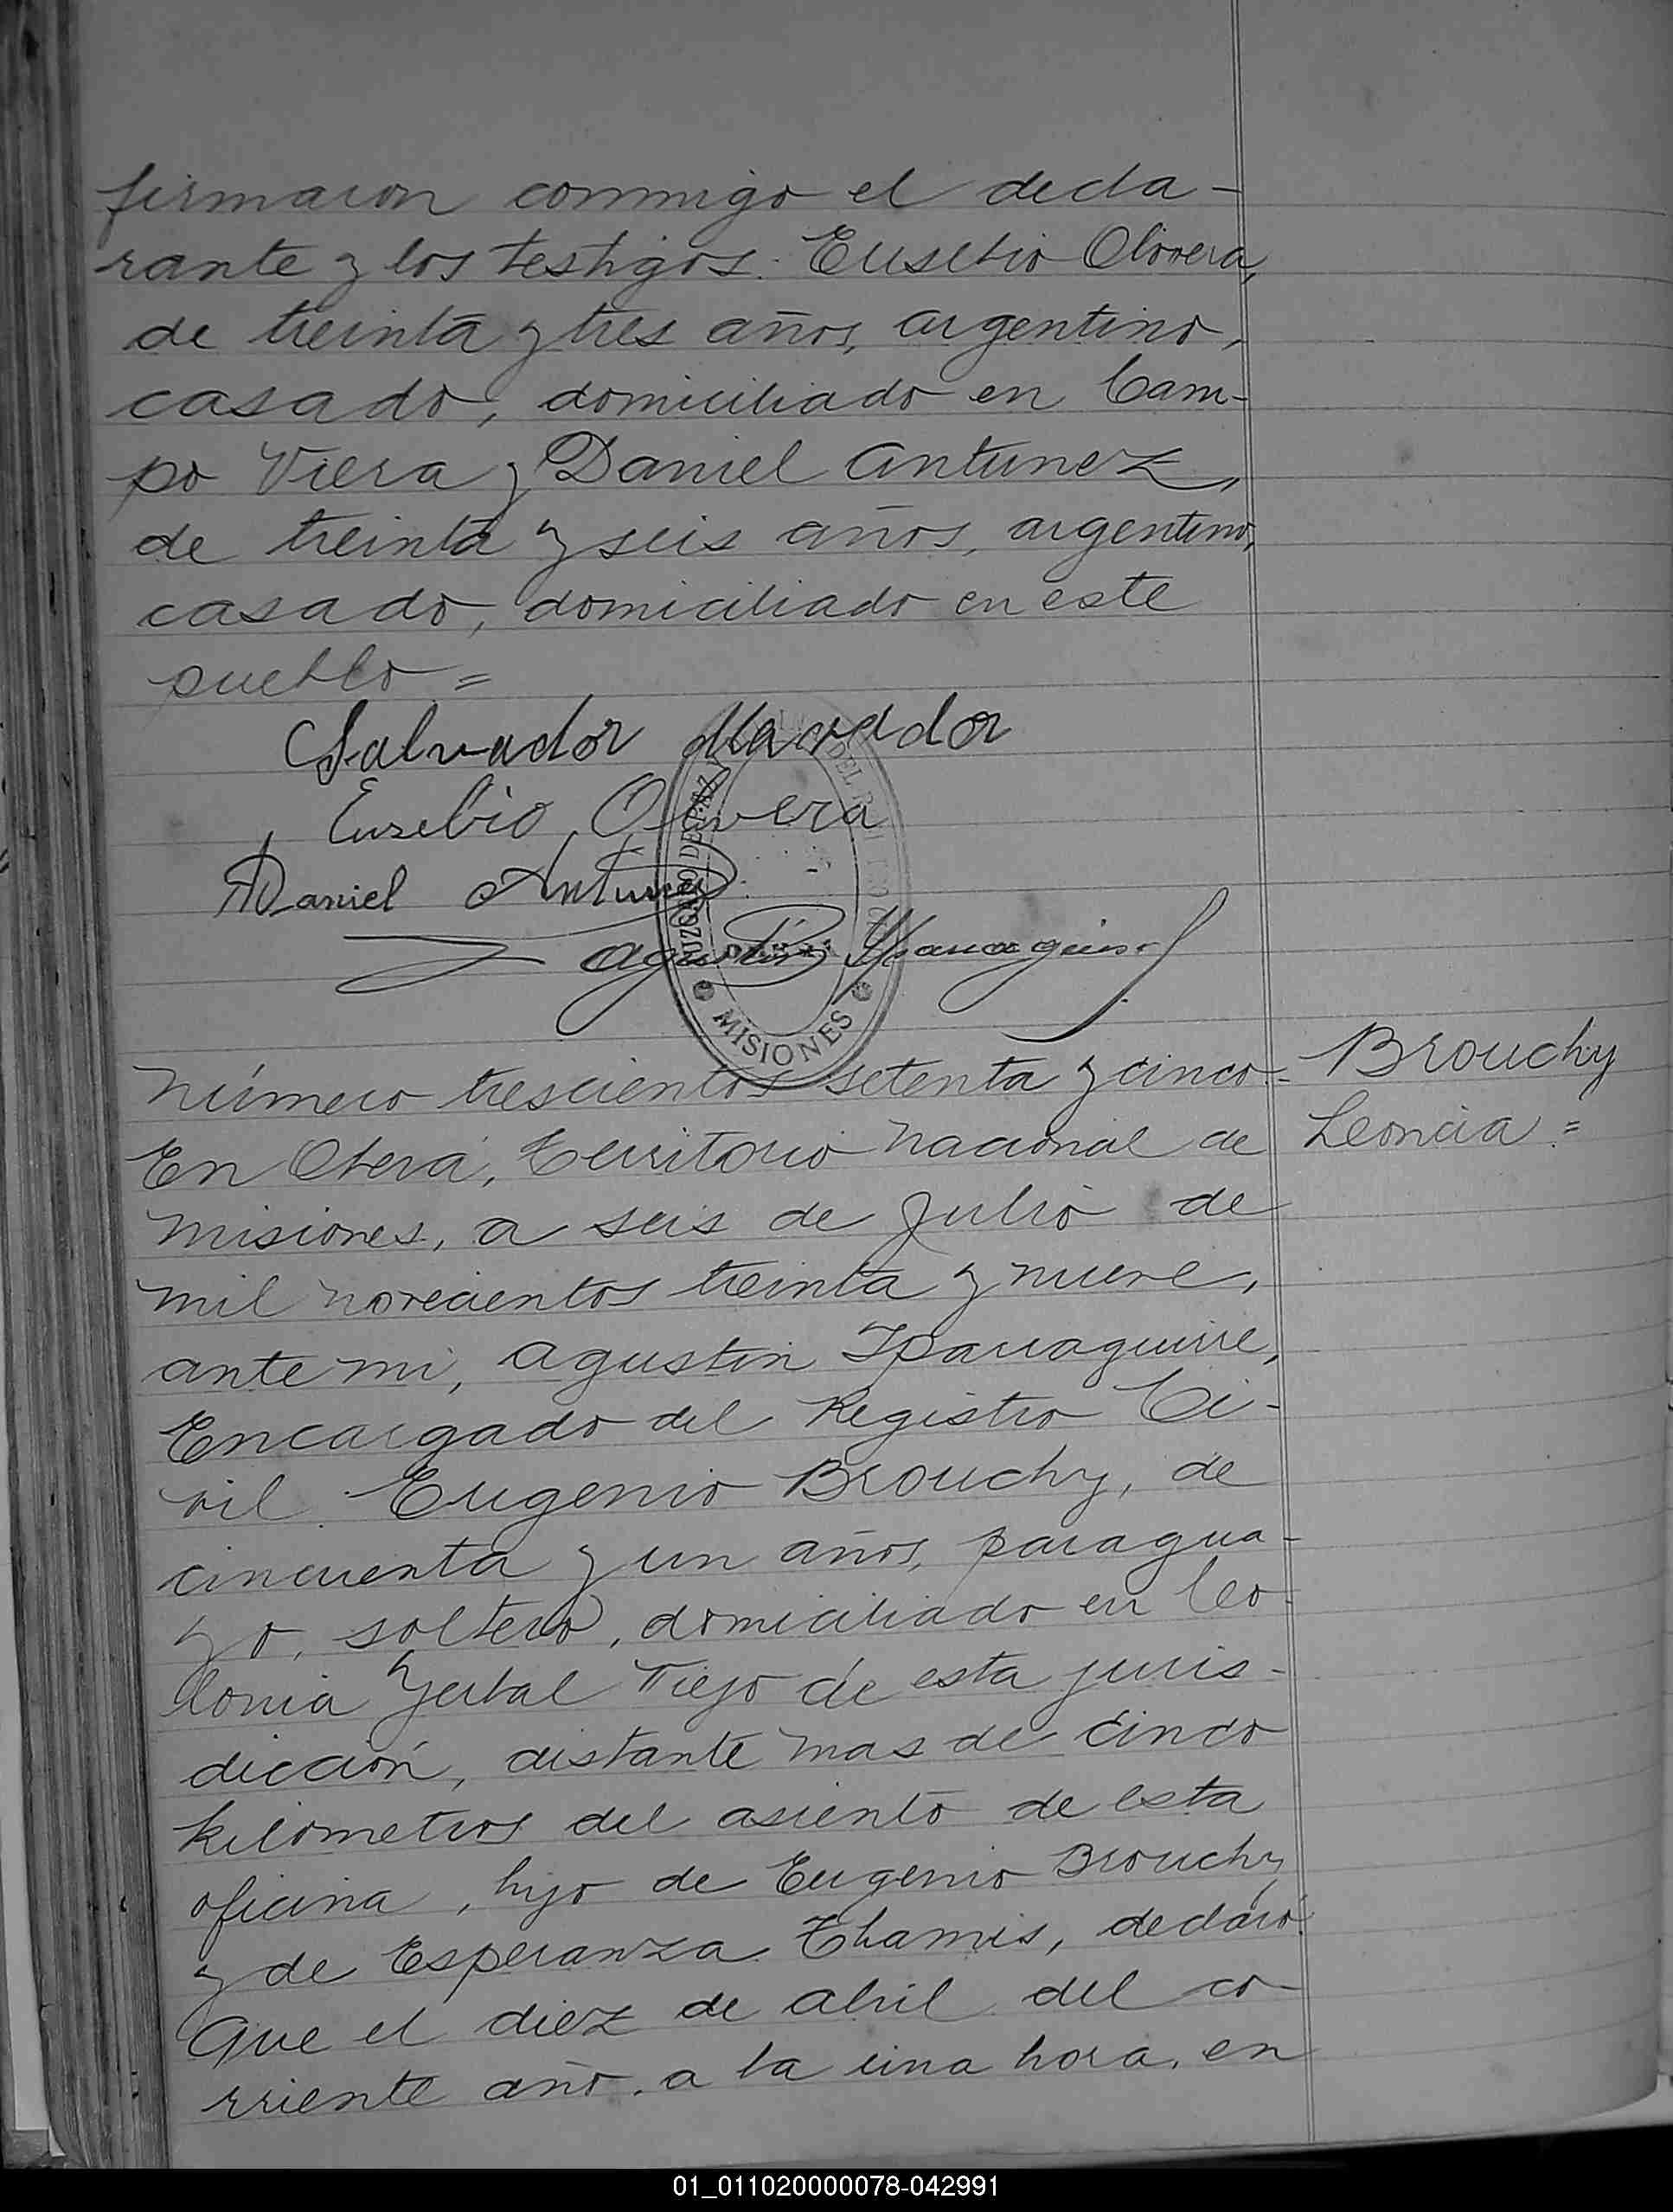 firmaron conmigo el decla-
rante y los testigos: Eusebio Olivera,
de treinta y tres años, argentino,
casado, domiciliado en Cam-
po Viera y Daniel Antunez,
de treinta y seis años, argentino,
casado, domiciliado en este
pueblo =
Salvador
Eusebio Olivera
Daniel Antunez
JUZGADO DE PAZ
MISIONES
Número trescientos setenta y cinco.-
Brouchy
Leoncia =
En Oberá, Territorio Nacional de
Misiones, a seis de Julio de
mil novecientos treinta y nueve,
ante mi, Agustin Iparraguirre,
Encargado del Registro Ci-
vil. Eugenio Brouchy, de
cincuenta y un años, paragua-
yo, soltero, domiciliado en Co-
lonia Yerbal Viejo de esta juris-
dicción, distante mas de cinco
kilometros del asiento de esta
oficina, hijo de Eugenio Brouchy
y de Esperanza Thamis, declaró:
Que el diez de abril del co-
rriente año, a la una hora, en
01_011020000078-042991